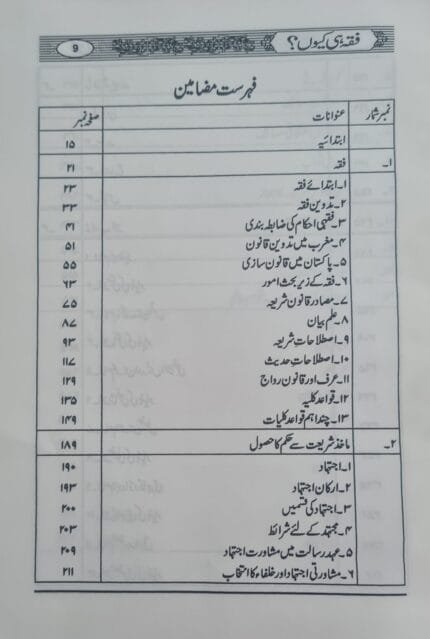 فقہ ہی کیوں؟ 9
فہرست مضامین
نمبر شمار عنوانات صفحہ نمبر
ابتدائیہ ۱۵
۱۔ فقہ ۲۱
۱۔ ابتدائے فقہ ۲۳
۲۔ تدوین فقہ ۳۳
۳۔ فقہی احکام کی ضابطہ بندی ۴۱
۴۔ مغرب میں تدوین قانون ۵۱
۵۔ پاکستان میں قانون سازی ۵۵
۶۔ فقہ کے زیر بحث امور ۶۳
۷۔ مصادر قانون شریعہ ۷۵
۸۔ علم بیان ۸۷
۹۔ اصطلاحات شریعہ ۹۳
۱۰۔ اصطلاحات حدیث ۱۱۷
۱۱۔ عرف اور قانون رواج ۱۲۹
۱۲۔ قواعد کلیہ ۱۳۵
۱۳۔ چند اہم قواعد کلیات ۱۴۹
۲۔ ماخذ شریعت سے حکم کا حصول ۱۸۹
۱۔ اجتہاد ۱۹۰
۲۔ ارکان اجتہاد ۱۹۳
۳۔ اجتہاد کی قسمیں ۲۰۰
۴۔ مجتہد کے لئے شرائط ۲۰۳
۵۔ عہد رسالت میں مشاورت اجتہاد ۲۰۹
۶۔ مشاورتی اجتہاد اور خلفاء کا انتخاب ۲۱۱